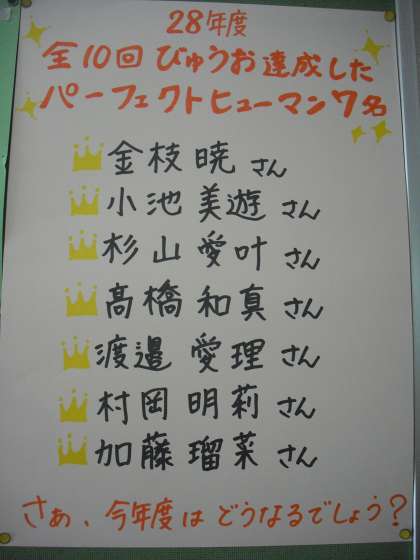 28年度
全10回びゅうお達成した
パーフェクトヒューマン7名
金枝暁さん
小池美遊さん
杉山愛叶さん
髙橋和真さん
渡邉愛理さん
村岡明莉さん
加藤瑠菜さん
さぁ、今年度はどうなるでしょう?